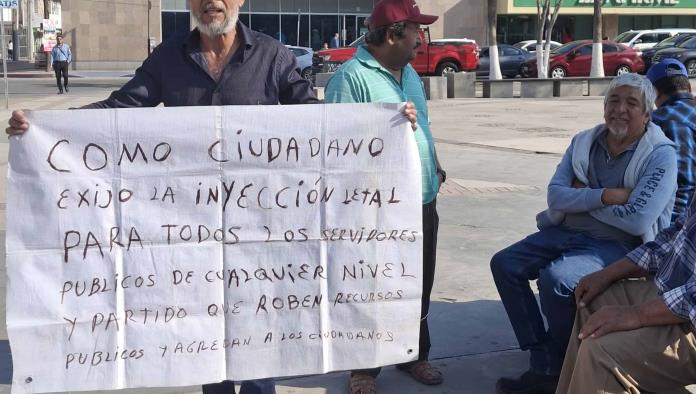 COMO CIUDADANO
EXIJO LA INYECCIÓN LETAL
PARA TODOS LOS SERVIDORES
PUBLICOS DE CUALQUIER NIVEL
Y PARTIDO QUE ROBEN RECURSOS
PUBLICOS Y AGREDAN A LOS CIUDADANOS
PEACE & GL